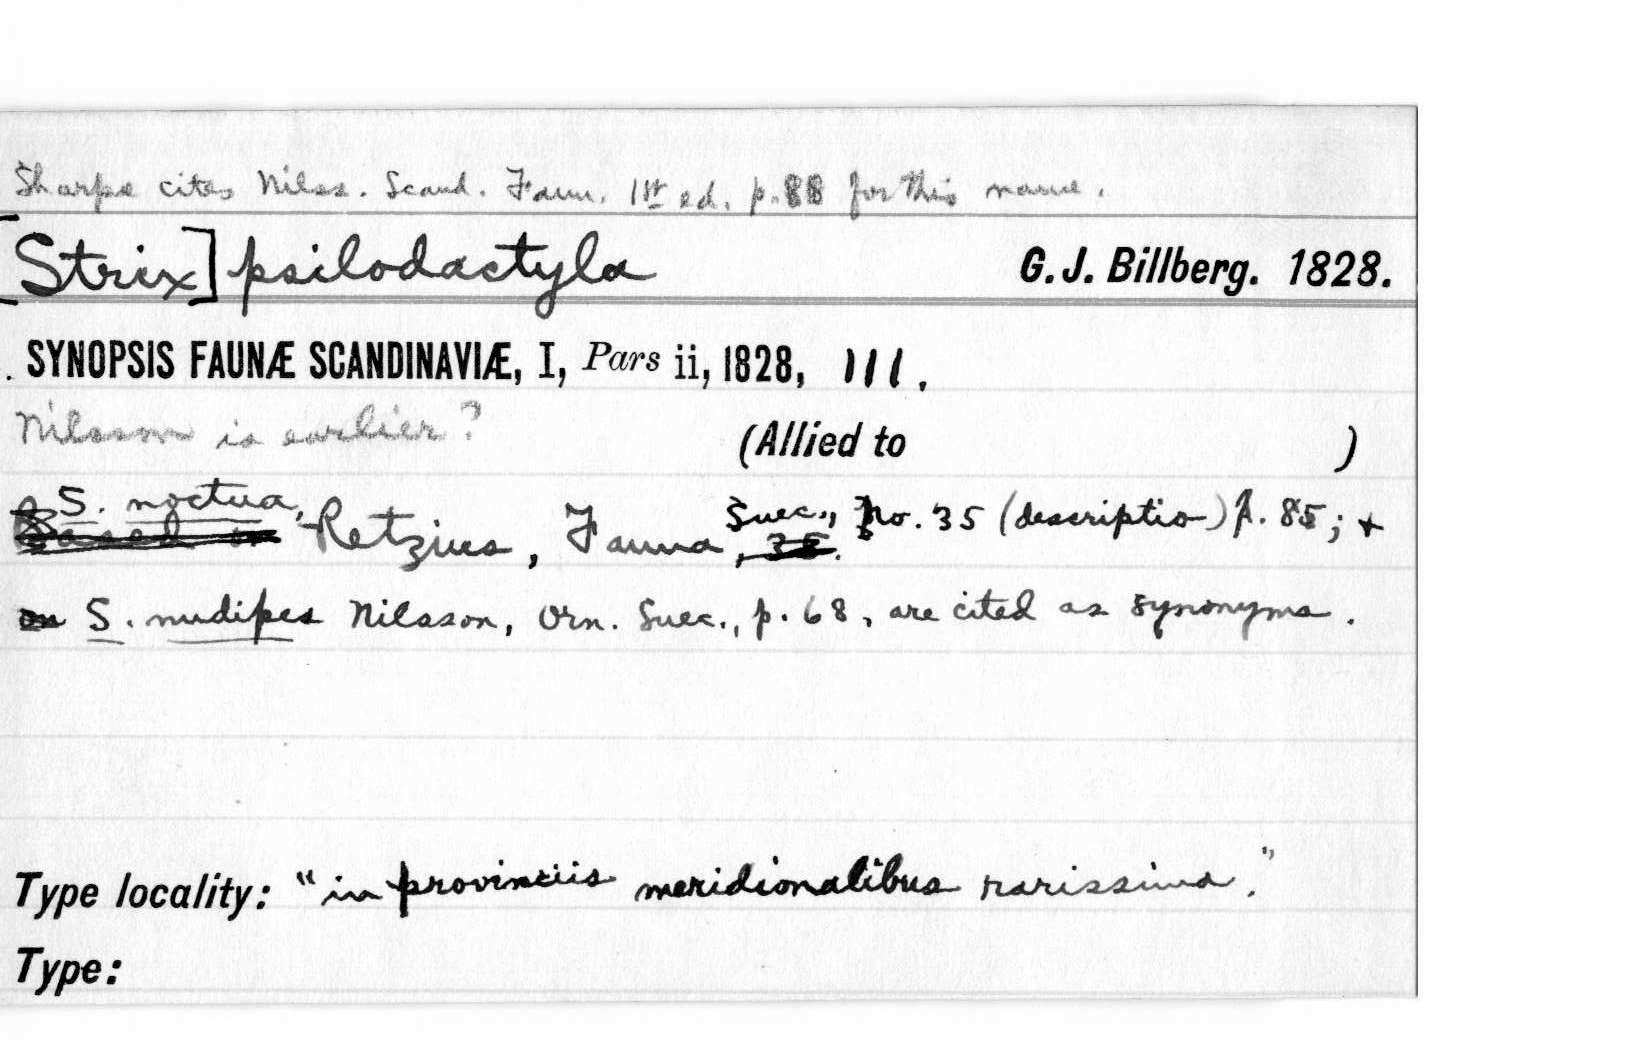 Sharpe cites Nilss. Scand. Faun. 1st ed. p. 88 for this name.
[Strix] psilodactyla G. J. Billberg. 1828.
. SYNOPSIS FAUNÆ SCANDINAVIÆ, I, Pars ii, 1828, 111.
Nilsson is earlier?
(Allied to )
S. noctua, Retzius, Fauna Suec., No. 35 (descriptio) p. 85; +
S. nudipes Nilsson, Orn. Suec., p. 68, are cited as synonyms.
Type locality: "in provinciis meridionalibus rarissima."
Type: